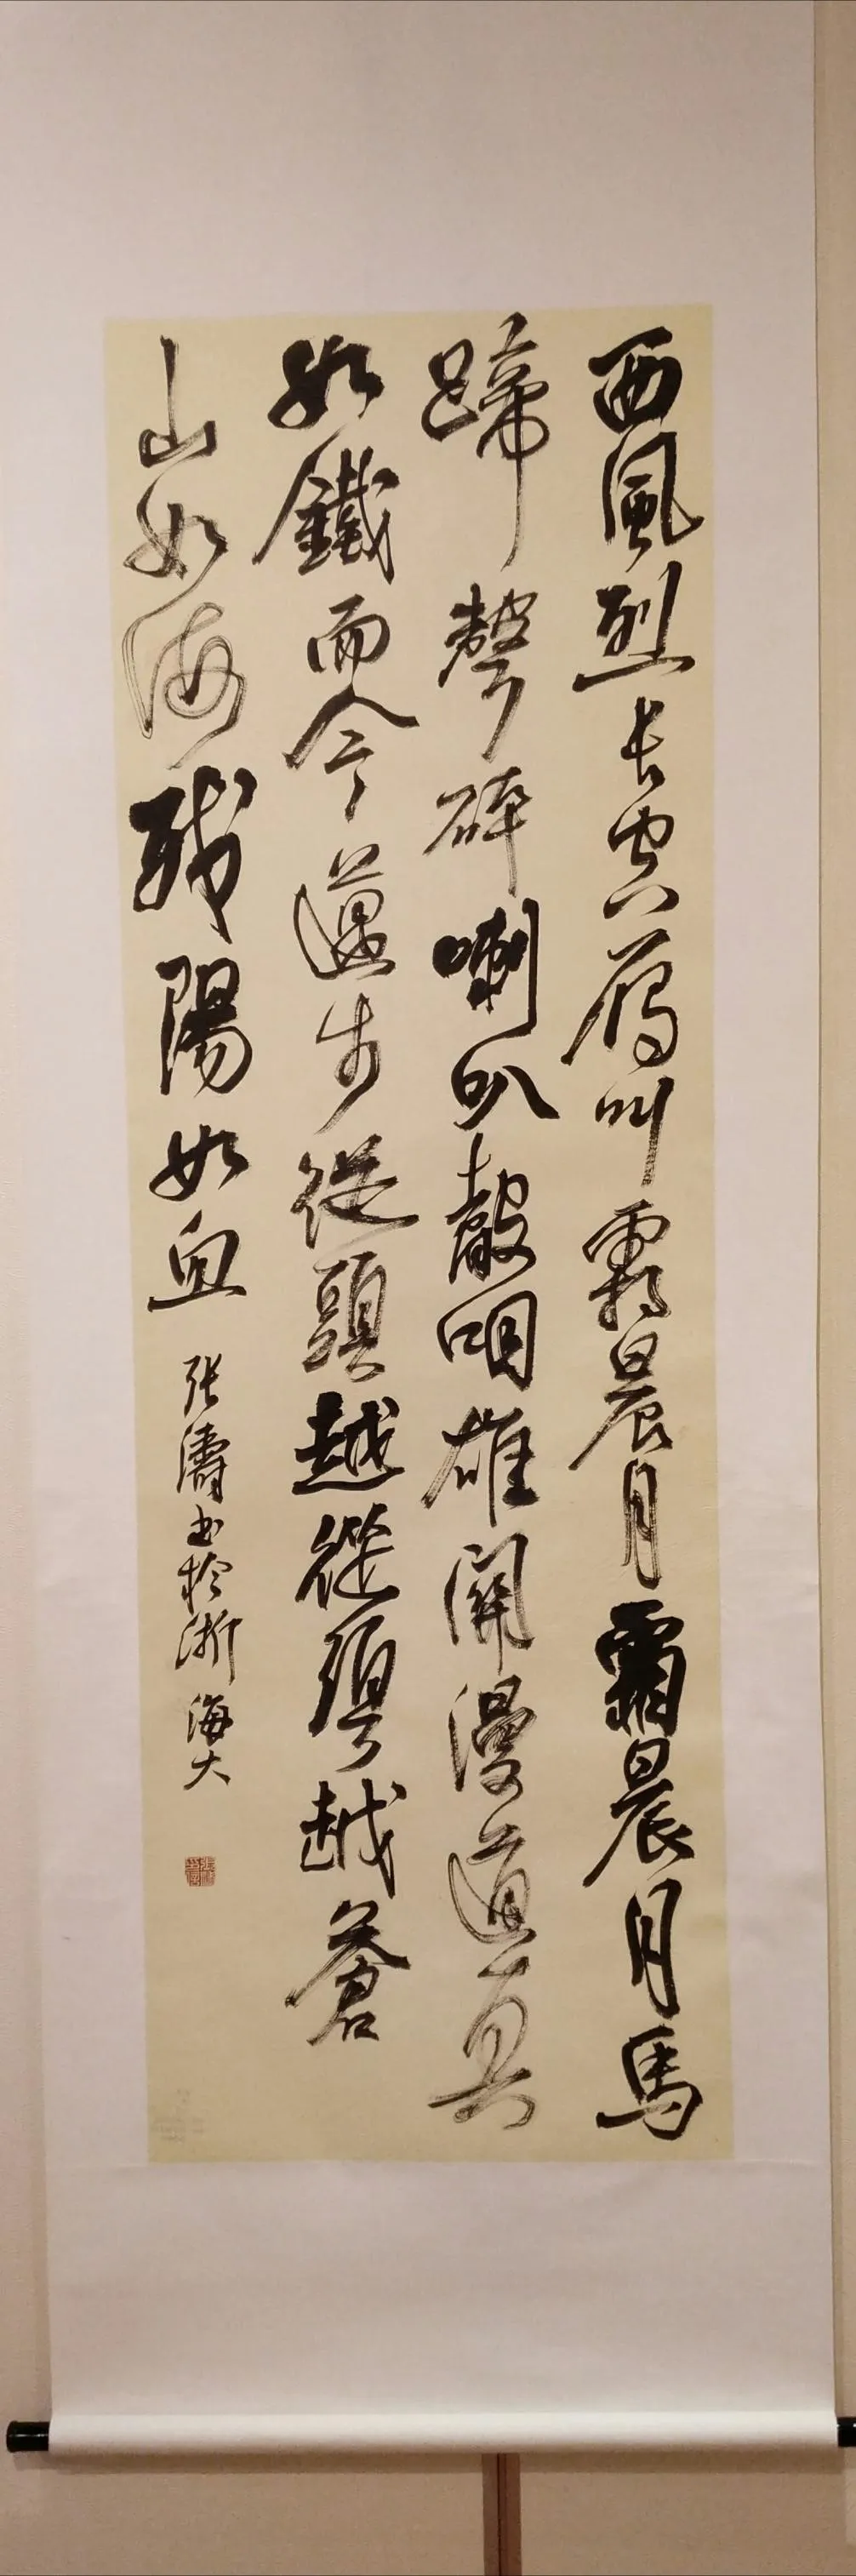 西風烈長空雁叫霜晨月霜晨月馬
蹄聲碎喇叭聲咽雄關漫道真
如鐵而今邁步從頭越從頭越蒼
山如海残陽如血
张濤书於浙海大